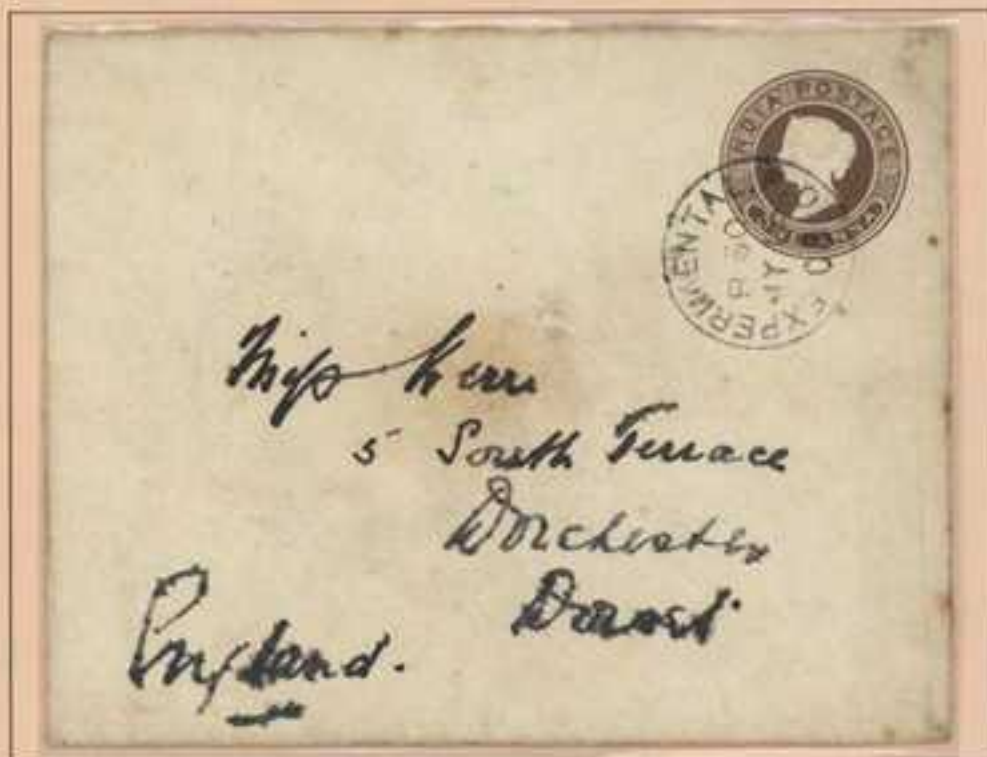 INDIA POSTAGE
EXPERIMENTAL P.O.
Miss Kerr
5 South Terrace
Dorchester
Dorset
England.